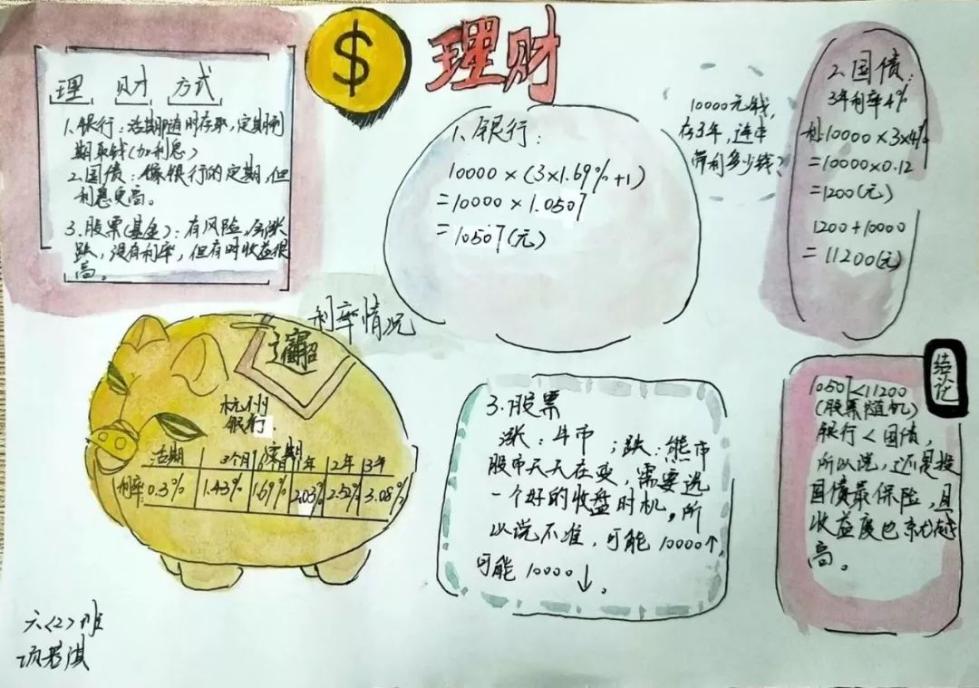 $
理财
理 财 方式
1.银行:活期随时存取,定期到
期取钱(加利息)
2.国债:像银行的定期,但
利息更高。
3.股票(基金):有风险,会涨
跌,没有利率,但有时收益很
高。
1、银行:
10000×(3×1.69%+1)
=10000×1.0507
=10507(元)
10000元钱,
存3年,连本
带利多少钱?
2.国债:
3年利率4%
利:10000×3×4%
=10000×0.12
=1200(元)
1200+10000
=11200(元)
利率情况
杭州
银行
活期 定期
3个月 6个月 1年 2年 3年
利率 0.3% 1.43% 1.69% 2.03% 2.52% 3.08%
3.股票
涨:牛市 ;跌:熊市
股市天天在变,需要选
一个好的收盘时机,所
以说不准,可能10000↑,
可能10000↓。
结论
10507<11200
(股票随机)
银行<国债,
所以说,还是投
国债最保险,且
收益度也就越
高。
六<2>班